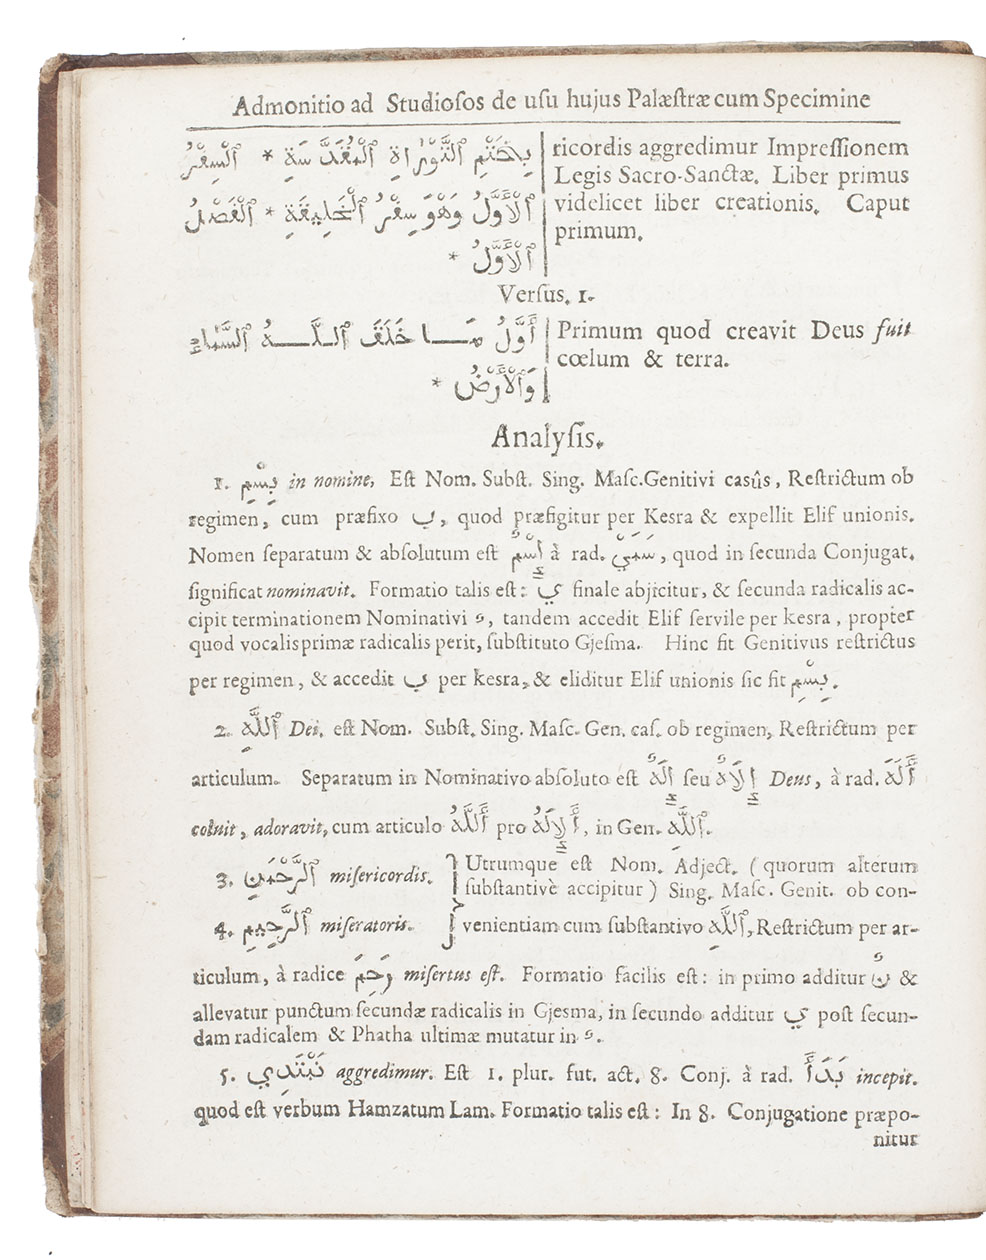 Admonitio ad Studiosos de usu hujus Palæstræ cum Specimine
بِخَتْمِ ٱلتَّوْرَاةِ ٱلْمُقَدَّسَةِ * ٱلسِفْرُ
ٱلْأَوَّلُ وَهْوَ سِفْرُ ٱلْخَلِيقَةِ * ٱلْفَصْلُ
ٱلْأَوَّلُ *
ricordis aggredimur Impreſſionem
Legis Sacro-Sanctæ. Liber primus
videlicet liber creationis. Caput
primum.
Verſus. 1.
أَوَّلُ مَا خَلَقَ ٱللَّهُ ٱلسَّمَاءَ
وَٱلْأَرْضُ *
Primum quod creavit Deus fuit
cœlum & terra.
Analyſis.
1. بِسْمِ in nomine, Eſt Nom. Subſt. Sing. Maſc. Genitivi casûs, Reſtrictum ob
regimen, cum præfixo ب, quod præfigitur per Kesra & expellit Elif unionis.
Nomen ſeparatum & abſolutum eſt إِسْمٌ à rad. سَمَيَ, quod in ſecunda Conjugat.
ſignificat nominavit. Formatio talis eſt: ي finale abjicitur, & ſecunda radicalis ac-
cipit terminationem Nominativi ٌ, tandem accedit Elif ſervile per kesra, propter
quod vocalis primæ radicalis perit, ſubſtituto Gjeſma. Hinc fit Genitivus reſtrictus
per regimen, & accedit ب per kesra, & eliditur Elif unionis ſic fit بِسْمِ.
2. ٱللَّهِ Dei. eſt Nom. Subſt. Sing. Maſc. Gen. caſ. ob regimen, Reſtrictum per
articulum. Separatum in Nominativo abſoluto eſt إِلَهٌ ſeu إِلَاهٌ Deus, à rad. أَلَهَ
coluit, adoravit, cum articulo أَللَّهُ pro أَلْإِلَاهُ, in Gen. ٱللَّهِ.
3. ٱلرَّحْمَنِ miſericordis.
4. ٱلرَّحِيمِ miſeratoris.
Utrumque eſt Nom. Adject. (quorum alterum
ſubſtantivè accipitur) Sing. Maſc. Genit. ob con-
venientiam cum ſubſtantivo ٱللَّهِ, Reſtrictum per ar-
ticulum, à radice رَحَمَ miſertus eſt. Formatio facilis eſt: in primo additur نٌ &
allevatur punctum ſecundæ radicalis in Gjesma, in ſecundo additur ي poſt ſecun-
dam radicalem & Phatha ultimæ mutatur in ٌ.
5. نَبْتَدِي aggredimur. Eſt 1. plur. fut. act. 8. Conj. à rad. بَدَأَ incepit.
quod eſt verbum Hamzatum Lam. Formatio talis eſt: In 8. Conjugatione præpo-
nitur